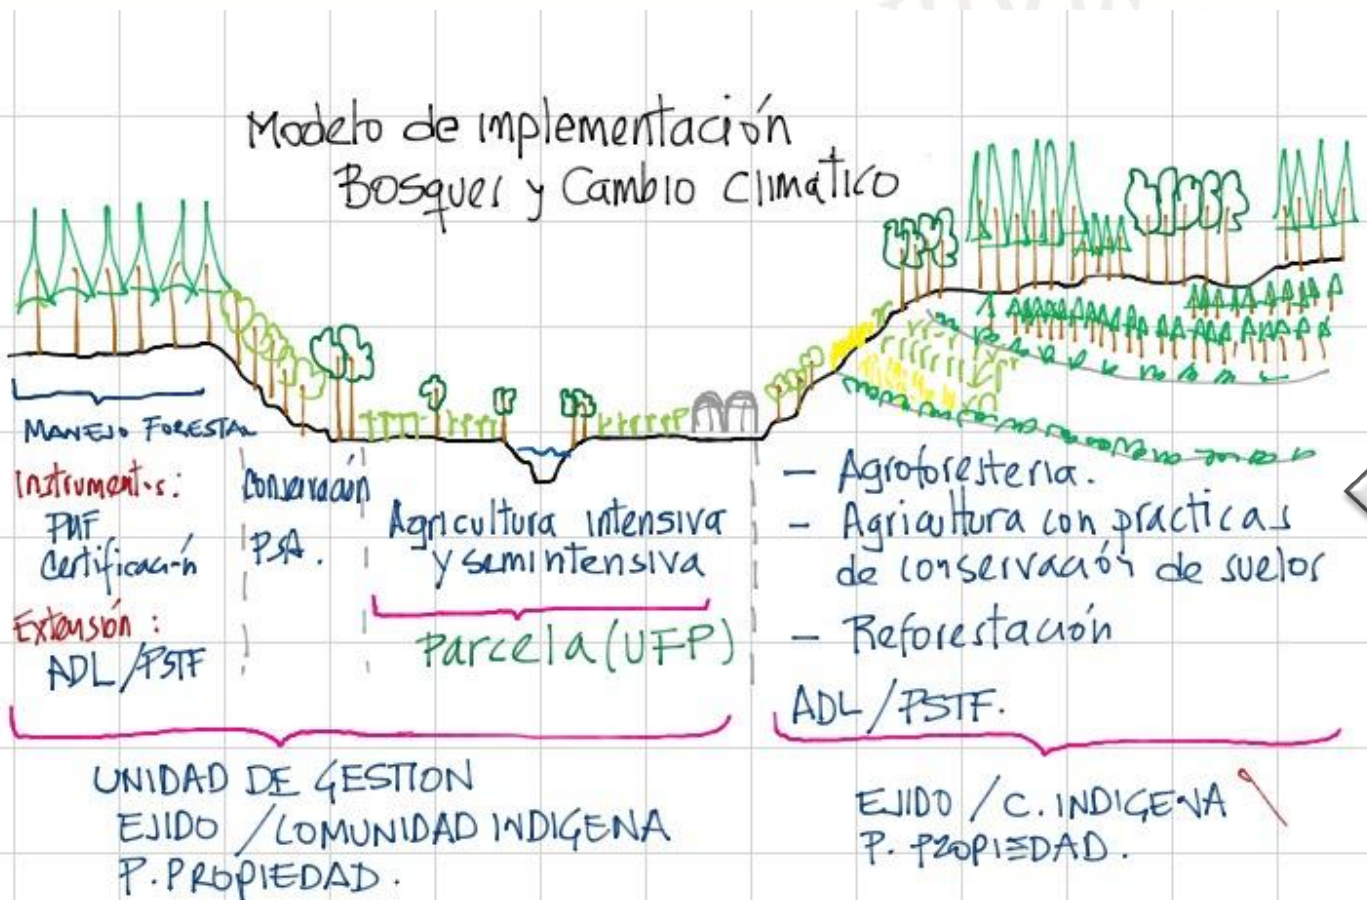 Modelo de implementación
Bosques y Cambio Climático
MANEJO FORESTAL
Instrument.s:
PMF
Certificación
Extensión:
ADL/PSTF
Conservación
PSA.
Agricultura intensiva
y semintensiva
Parcela (UFP)
- Agroforesteria.
- Agricultura con practicas
de conservación de suelos
- Reforestación
ADL/PSTF.
UNIDAD DE GESTION
EJIDO / COMUNIDAD INDIGENA
P. PROPIEDAD.
EJIDO / C. INDIGENA
P. PROPIEDAD.